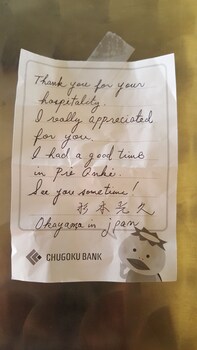 Thank you for your
hospitality.
I really appreciated
for you.
I had a good time
in Pio
See you sometime!
杉本 久
Okayama in jpan
CHUGOKU BANK